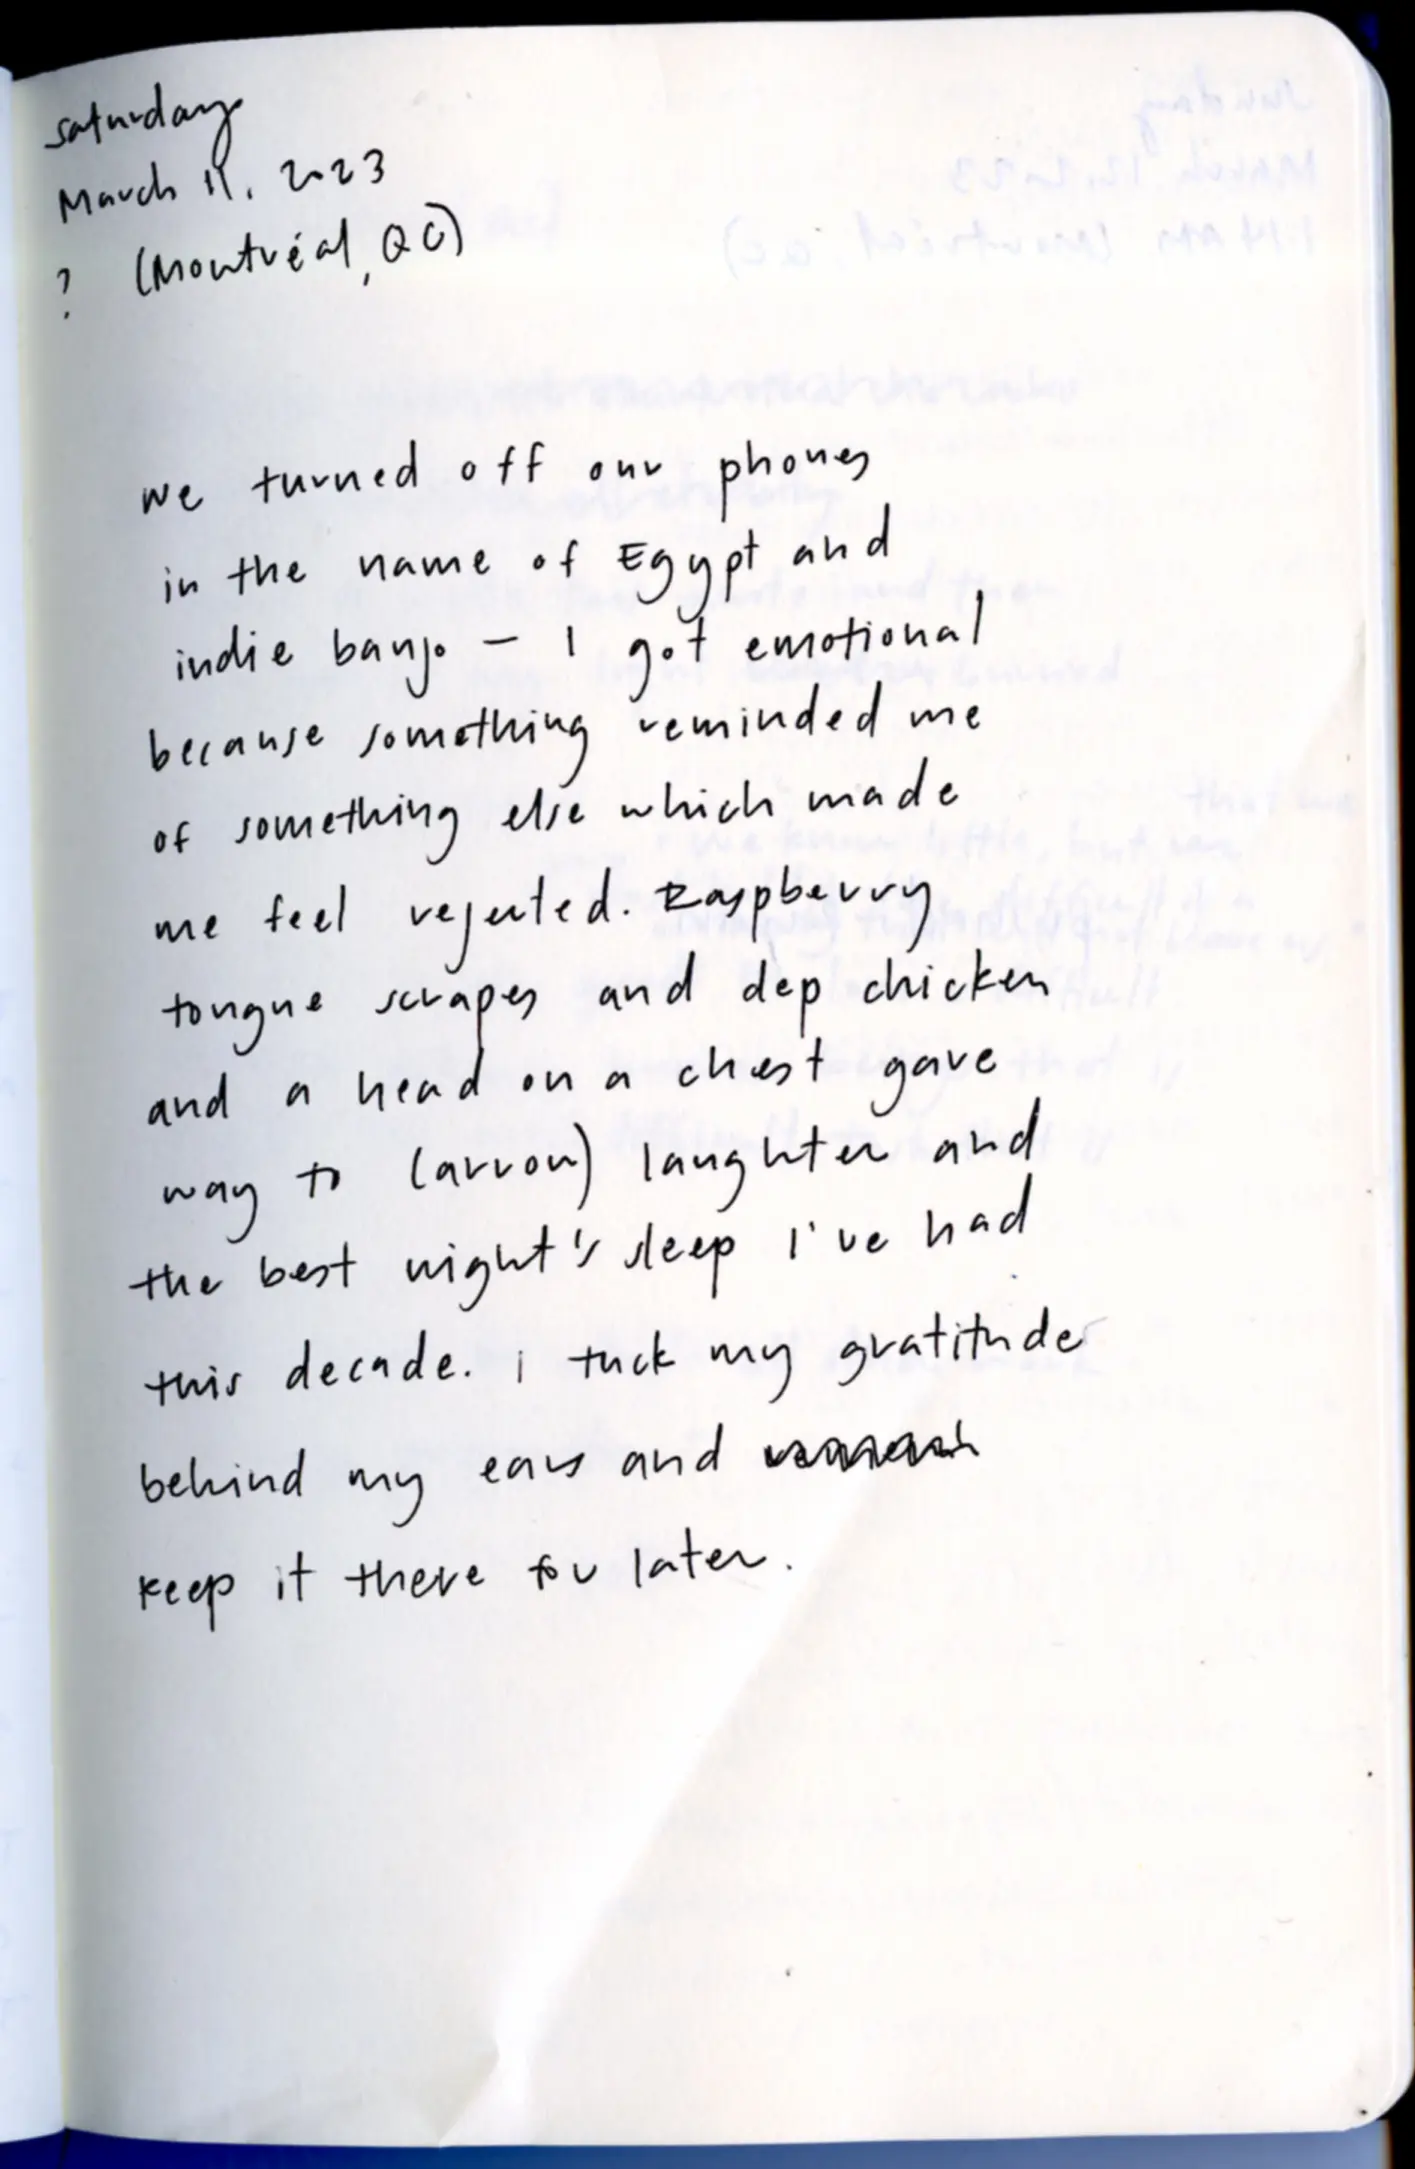 saturday
March 11, 2023
? (Montréal, QC)
we turned off our phones
in the name of Egypt and
indie banjo – I got emotional
because something reminded me
of something else which made
me feel rejected. Raspberry
tongue scrapes and dep chicken
and a head on a chest gave
way to (arron) laughter and
the best night's sleep I've had
this decade. i tuck my gratitude
behind my ears and
keep it there for later.